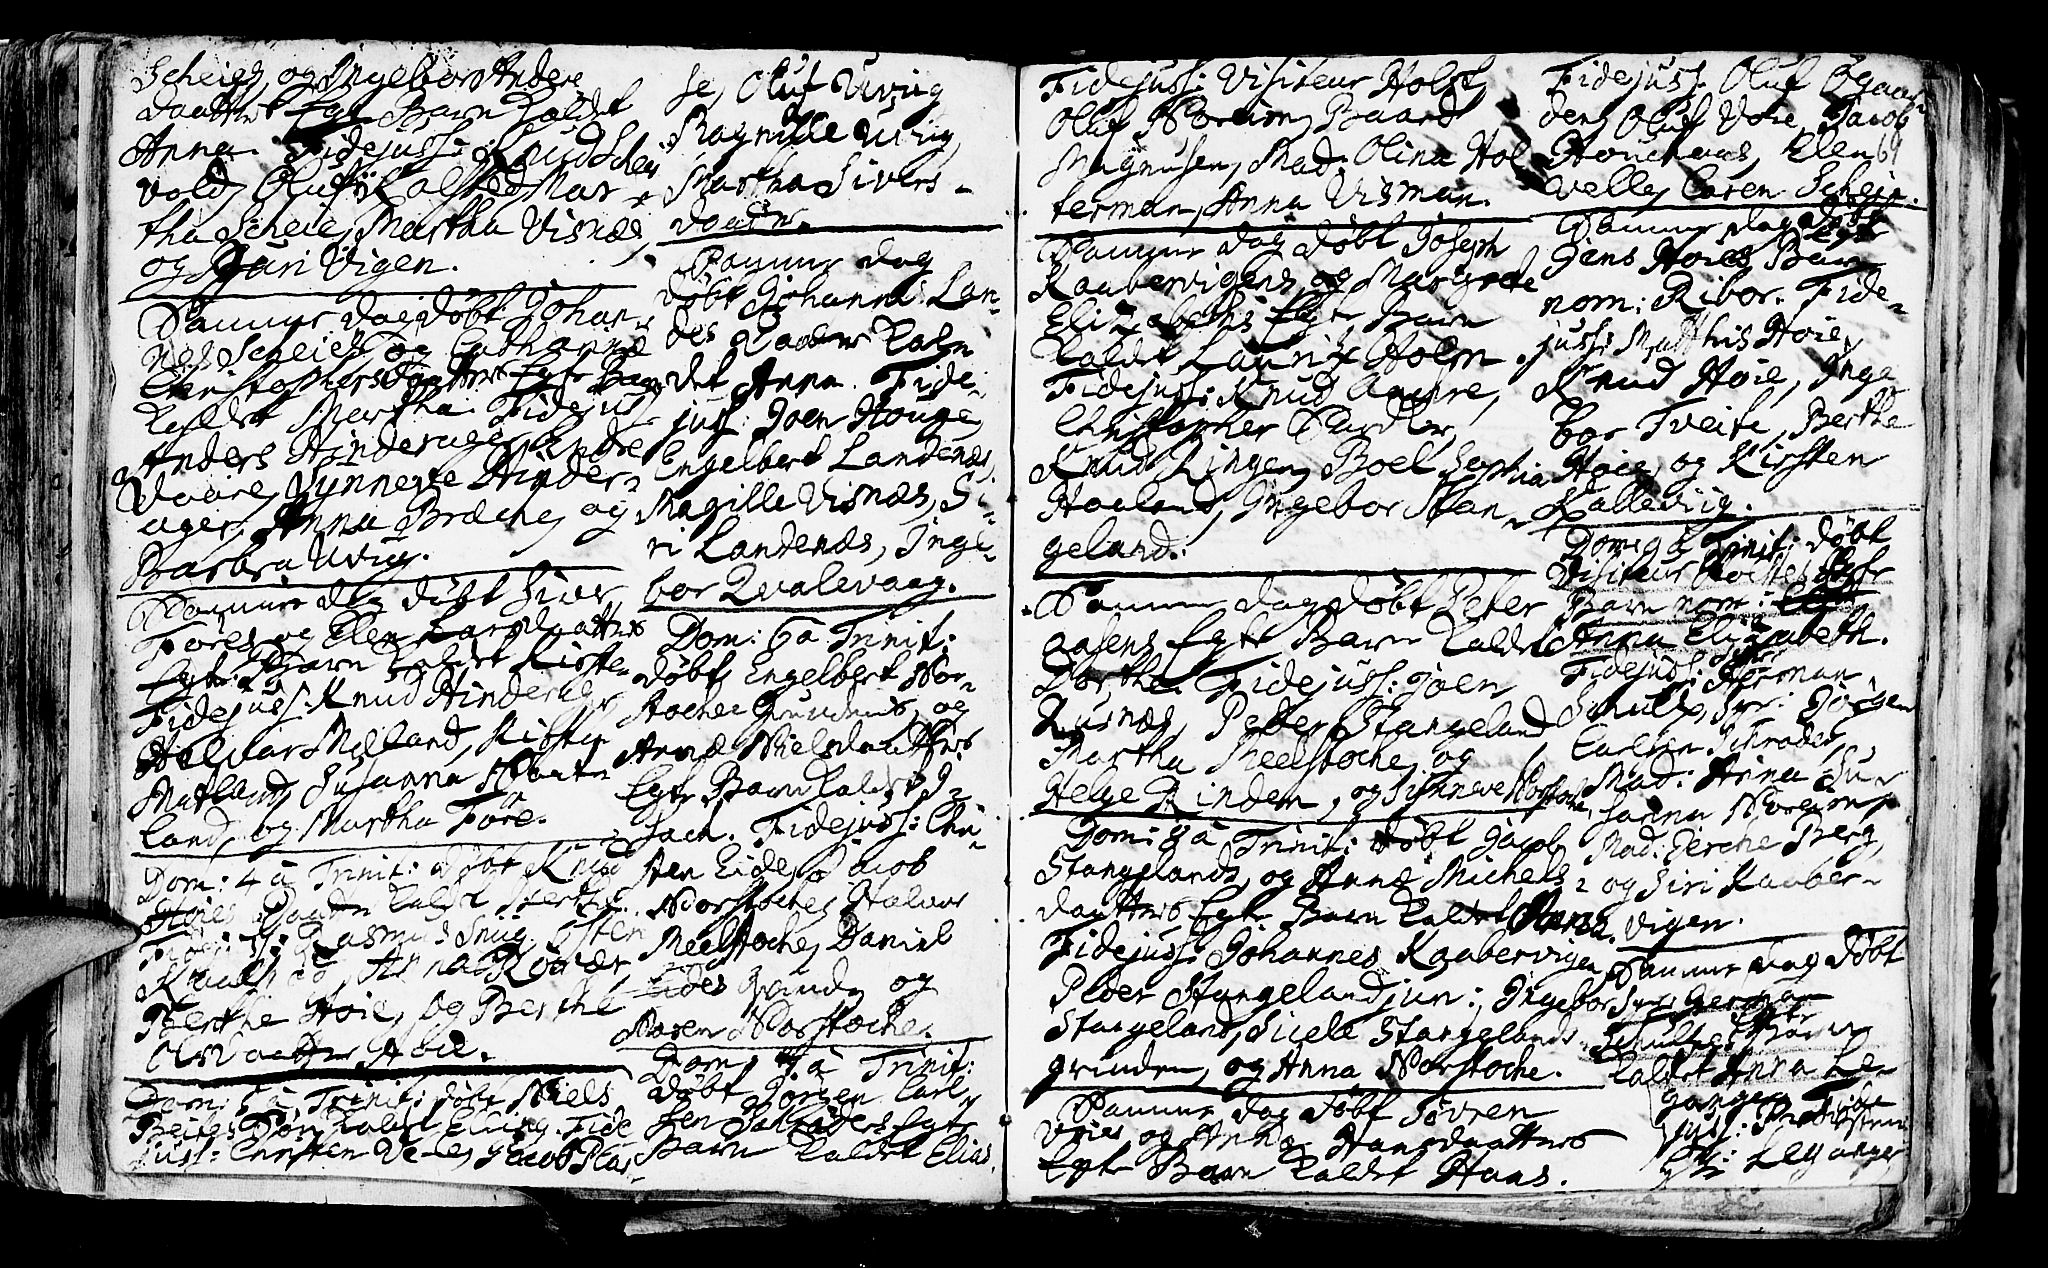 Scheies, og Ingebor Anders
daatters Egte Barn kaldet
Anna. Fidejuss: Knud Schei
vold, Oluf Kalsted, Mar-
tha Scheie, Martha Visnæs,
og Guri Vigen.
Samme dag døbt Johan-
nes Scheies, og Catharinæ
Christophersdaatters Egte Barn
kaldet Martha. Fidejuss:
Anders Hinderager, Endre
Vaare, Synneve Hinder-
ager, Anna Bræche, og
Barbra Uviig.
Samme dag døbt Siver
Føres og Elen Larsdaatters
Egte Barn kaldet Kirsten
Fidejuss: Knud Hinderager
Halvar Mæland, Kirsten
Matland, Susanna
land, og Martha Føre.
Dom: 4 à Trinit: døbt Knud
Høies Barn kaldet Berthe.
Fidejuss: Rasmus Sniig, Østen
Anna
Berthe Høie, og Berthe
Olsdaatter Høie.
Dom: 5 à Trinit: døbt Niels
Søn kaldet Elling. Fide
juss: Christen Jacob Clas-
se, Oluf Uviig
Ragnille Uviig,
Martha Sivers-
daatter.
Samme dag
døbt Johannes Lan-
des Barn kaln
det Anna. Fide-
juss: Joen Houge,
Engelbert Landenæs,
Ragille Visnæs, Si-
ri Landenæs, Inge-
bor Qvalevaag.
Dom: 6 à Trinit:
døbt Engelbert Nor-
stoches Grindens, og
Annæ Nielsdaatters
Egte Barn kaldet I-
sach. Fidejuss: Chri-
sten Eide, Jacob
Norstoche, Halvar
Meelstoche, Daniel
Eides grinde og
Karen Norstoche.
Dom: 7 à Trinit:
døbt Jørgen Carl-
sen Schrøders Egte
Barn kaldet Elias.
Fidejuss: Visiteur Holst,
Oluf Noreim, Baard
Magnusen, Mad. Olina Hol-
terman, Anna Visman.
Samme dag døbt Joseph
Kaabervigens og Margrete
Elizabeths Egte Barn
kaldt Lauritz Holm.
Fidejuss: Knud Aacre,
Christopher
Knud Ringen, Boel Sophia
Haaland, Ingebor Stan-
geland.
Samme dag døbt Peter
aasens Egte Barn kaldt
Dorthe. Fidejuss: Joen
Husnæs, Peder Stangeland
Martha Meelstoche, og
Helge Rinden, og Synneve Norstoche.
Dom: 8 à Trinit: døbt Jacob
Stangelands, og Annæ Michels-
daatters Egte Barn kaldet Anna.
Fidejuss: Johannes Kaabervigen
Peder Stangeland jun:, Ingebor
Stangeland, Sicele Stangelands
grinden, og Anna Norstoche.
Samme dag døbt Søvren
Vøies, og Annæ Hansdaatters
Egte Barn kaldet Hans.
Fidejuss: Oluf Øgaar-
den, Oluf Vøie, Jacob
Elen
velle, Caren Scheie.
64
Samme dag døbt
Jens Høies Egte Barn
nom: Ribor. Fide-
juss: Matthis Høie,
Knud Høie, Inge
bor Tveite, Berthe
Høie, og Kirsten
Kalleviig.
Dom: 9 à Trinit: døbt
Visiteur Holstes Egte
Barn nom:
Anna Elizabeth.
Fidejuss: Syr: Herman
Schultz, Syr: Jørgen
Carlsen Schrøder,
Mad: Anna Su-
sanna Noreim,
Mad: Berg,
og Siri Kaaber-
vigen.
Samme dag døbt
Syr: Herman
Schultzes Egte Barn
kaldet Anna Le-
gangen. Fide
juss: Kirsten
Legangen